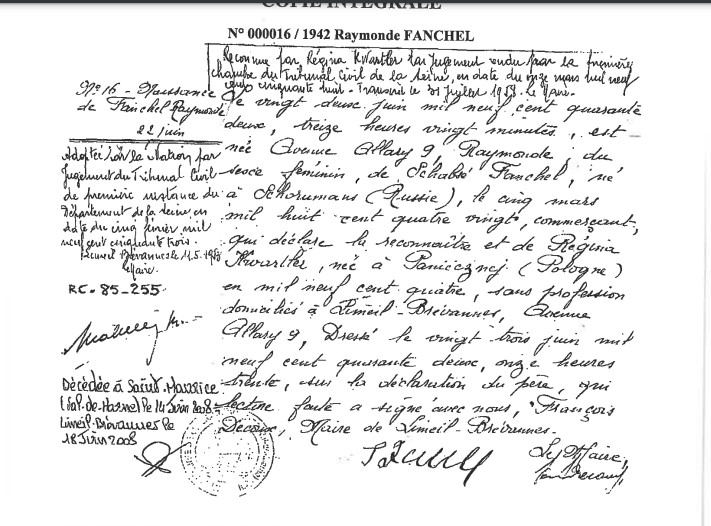 COPIE INTEGRALE
N° 000016 / 1942 Raymonde FANCHEL
Reconnue par Régina Kwartler par Jugement rendu par la première
chambre du Tribunal Civil de la Seine, en date du onze mars mil neuf
cent cinquante huit - Transcrit le 31 juillet 1958. Le Maire
N° 16 - Naissance
de Fanchel Raymonde
22 juin
Adoptée par la Nation par
Jugement du Tribunal Civil
de première instance du
Département de la Seine en
date du cinq février mil
neuf cent cinquante trois.
Limeil Brévannes le 11.5.
Le Maire
RC. 85-255
Décédée à Saint-Maurice
(Val-de-Marne) le 14 Juin 2008 -
Limeil-Brévannes le
18 Juin 2008
Le vingt deux juin mil neuf cent quarante
deux, treize heures vingt minutes, est
née Avenue Allary 9, Raymonde, du
sexe féminin, de Fanchel, né
à (Russie), le cinq mars
mil huit cent quatre vingt, commerçant,
qui déclare la reconnaître et de Régina
Kwartler, née à (Pologne)
en mil neuf cent quatre, sans profession
domiciliés à Limeil-Brévannes, Avenue
Allary 9, Dressé le vingt trois juin mil
neuf cent quarante deux, onze heures
trente, sur la déclaration du père, qui
lecture faite a signé avec nous, François
Decoux, Maire de Limeil-Brévannes.
Le Maire,